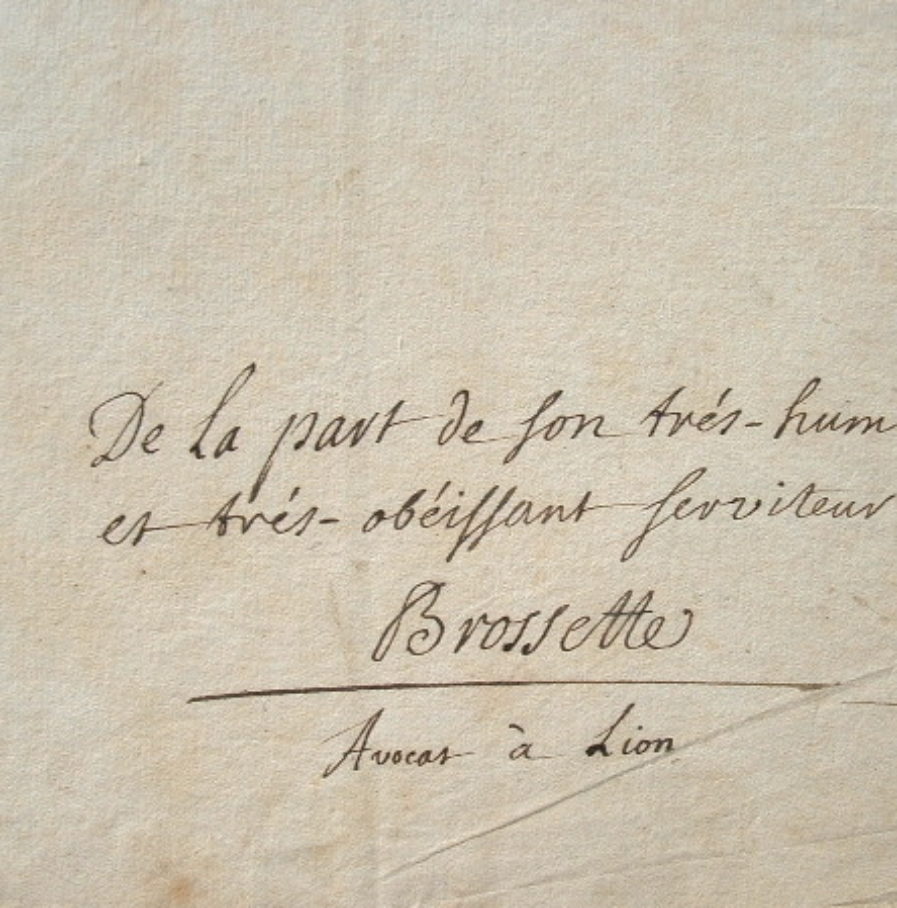 De la part de son trés-hum
et trés-obéissant serviteur
Brossette
Avocat à Lion